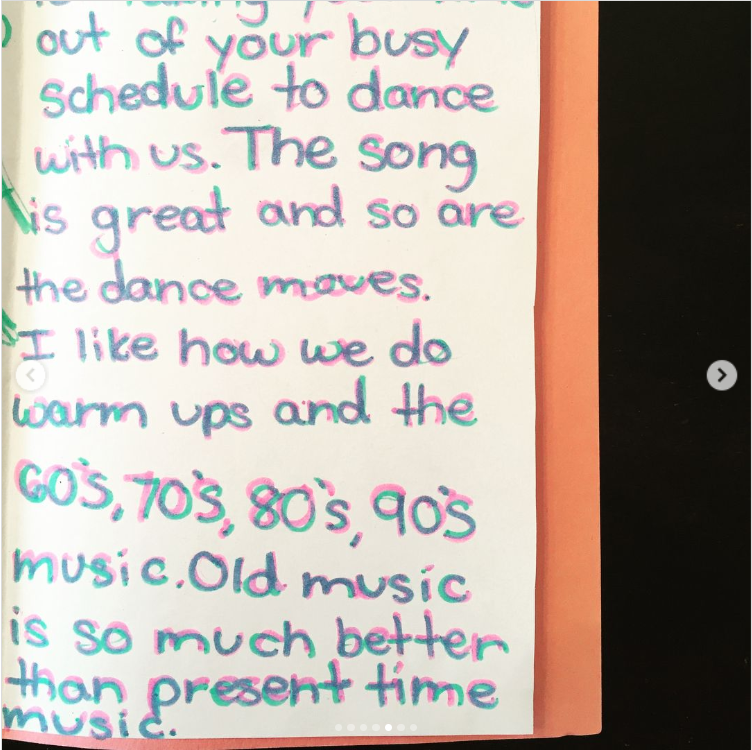 out of your busy
schedule to dance
with us. The song
is great and so are
the dance moves.
I like how we do
warm ups and the
60's, 70's, 80's, 90's
music. Old music
is so much better
than present time
music.